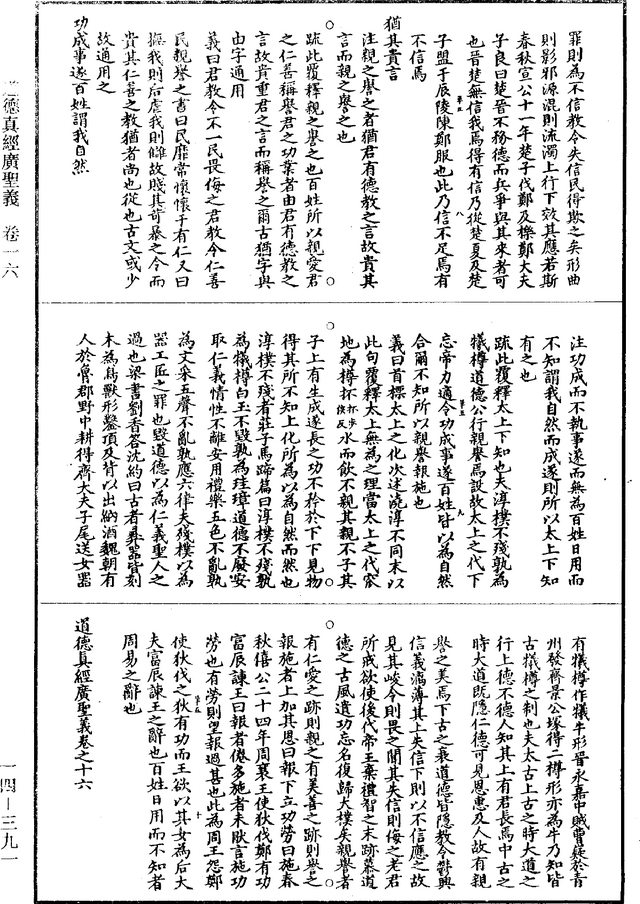 罪則為不信教令失信民得欺之矣形曲
則影邪源混則流濁上行下效其應若斯
春秋宣公十一年楚子伐鄭及櫟鄭大夫
子良曰楚晉不務德而兵爭與其來者可
也晉楚無信我焉得有信乃從楚夏及楚
子盟于辰陵陳鄭服也此乃信不足焉有
不信焉
猶其貴言
注親之譽之者猶君有德教之言故貴其
言而親之譽之也
疏此覆釋親之譽之也百姓所以親愛君
之仁善稱譽君之功業者由君有德教之
言故貴重君之言而稱譽之爾古猶字與
由字通用
義曰君教令不一民畏侮之君教令仁善
民親譽之書曰民靡常懷懷于有仁又曰
撫我則后虐我則讎故賤其苛暴之令而
貴其仁善之教猶者尚也從也古文或少
故通用之
功成事遂百姓謂我自然
注功成而不執事遂而無為百姓日用而
不知謂我自然而成遂則所以太上下知
有之也
疏此覆釋太上下知也夫淳樸不殘孰為
犧樽道德公行親譽焉設故太上之代下
忘帝力適令功成事遂百姓皆以為自然
合爾不知所以親譽報施也
義曰首標太上之化次述澆淳不同末以
此句覆釋太上無為之理當太上之代窊
地為樽抔水而飲不親其親不子其
子上有生成遂長之功不矜於下下見物
得其所不知上化所為以為自然而然也
淳樸不殘者莊子馬蹄篇曰淳樸不殘孰
為犧樽白玉不毀孰為珪璋道德不廢安
取仁義情性不離安用禮樂五色不亂孰
為文采五聲不亂孰應六律夫殘樸以為
器工匠之罪也毀道德以為仁義聖人之
過也梁書劉杳答沈約曰古者彝器皆刻
木為鳥獸形鑿頂及背以出納酒魏朝有
人於魯郡野中耕得齊大夫子尾送女器
有犧樽作犧牛形晉永嘉中賊曹嶷於青
州發齊景公塚得二樽形亦為牛乃知皆
古犧樽之制也夫太古上古之時大道之
行上德不德人知其上有君長焉中古之
時大道既隱仁德可見恩惠及人故有親
譽之美焉下古之衰道德皆隱教令欝興
信義漓薄其上失信下則以不信應之故
見其峻令則畏之聞其失信則侮之老君
所戒欲使後代帝王棄禮智之末跡慕道
德之古風遺功忘名復歸大樸矣親譽者
有仁愛之跡則親之有美善之跡則譽之
報施者上加其恩曰報下立功勞曰施春
秋僖公二十四年周襄王使狄伐鄭有功
富辰諫王曰報者倦矣施者未猒言施功
勞也有勞則望報過甚也此為周王怨鄭
使狄伐之狄有功而王欲以其女為后大
夫富辰諫王之辭也百姓日用而不知者
周易之辭也
道德真經廣聖義卷之十六
德真經廣聖義 卷一六
一四－三九一